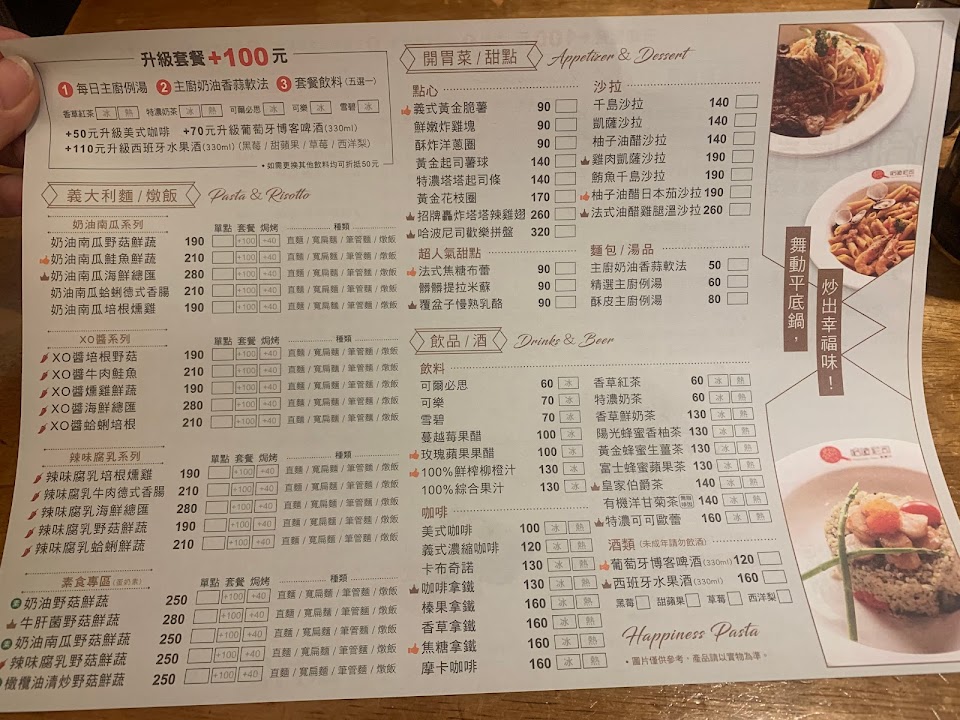 升級套餐+100元
1 每日主廚例湯 2 主廚奶油香蒜軟法 3 套餐飲料(五選一)
香草紅茶 冰 熱 特濃奶茶 冰 熱 可爾必思 冰 可樂 冰 雪碧 冰
+50元升級美式咖啡 +70元升級葡萄牙博客啤酒(330ml)
+110元升級西班牙水果酒(330ml) (黑莓 / 甜蘋果 / 草莓 / 西洋梨)
• 如需更換其他飲料均可折抵50元
義大利麵 / 燉飯 Pasta & Risotto
奶油南瓜系列 單點 套餐 焗烤 種類
奶油南瓜野菇鮮蔬 190 +100 +40 直麵 / 寬扁麵 / 筆管麵 / 燉飯
奶油南瓜鮭魚鮮蔬 210 +100 +40 直麵 / 寬扁麵 / 筆管麵 / 燉飯
奶油南瓜海鮮總匯 280 +100 +40 直麵 / 寬扁麵 / 筆管麵 / 燉飯
奶油南瓜蛤蜊德式香腸 210 +100 +40 直麵 / 寬扁麵 / 筆管麵 / 燉飯
奶油南瓜培根燻雞 190 +100 +40 直麵 / 寬扁麵 / 筆管麵 / 燉飯
XO醬系列 單點 套餐 焗烤 種類
XO醬培根野菇 190 +100 +40 直麵 / 寬扁麵 / 筆管麵 / 燉飯
XO醬牛肉鮭魚 210 +100 +40 直麵 / 寬扁麵 / 筆管麵 / 燉飯
XO醬燻雞鮮蔬 190 +100 +40 直麵 / 寬扁麵 / 筆管麵 / 燉飯
XO醬海鮮總匯 280 +100 +40 直麵 / 寬扁麵 / 筆管麵 / 燉飯
XO醬蛤蜊培根 210 +100 +40 直麵 / 寬扁麵 / 筆管麵 / 燉飯
辣味腐乳系列 單點 套餐 焗烤 種類
辣味腐乳培根燻雞 190 +100 +40 直麵 / 寬扁麵 / 筆管麵 / 燉飯
辣味腐乳牛肉德式香腸 210 +100 +40 直麵 / 寬扁麵 / 筆管麵 / 燉飯
辣味腐乳海鮮總匯 280 +100 +40 直麵 / 寬扁麵 / 筆管麵 / 燉飯
辣味腐乳野菇鮮蔬 190 +100 +40 直麵 / 寬扁麵 / 筆管麵 / 燉飯
辣味腐乳蛤蜊鮮蔬 210 +100 +40 直麵 / 寬扁麵 / 筆管麵 / 燉飯
素食專區(蛋奶素) 單點 套餐 焗烤 種類
奶油野菇鮮蔬 250 +100 +40 直麵 / 寬扁麵 / 筆管麵 / 燉飯
牛肝菌野菇鮮蔬 280 +100 +40 直麵 / 寬扁麵 / 筆管麵 / 燉飯
奶油南瓜野菇鮮蔬 250 +100 +40 直麵 / 寬扁麵 / 筆管麵 / 燉飯
辣味腐乳野菇鮮蔬 250 +100 +40 直麵 / 寬扁麵 / 筆管麵 / 燉飯
橄欖油清炒野菇鮮蔬 250 +100 +40 直麵 / 寬扁麵 / 筆管麵 / 燉飯
開胃菜 / 甜點 Appetizer & Dessert
點心
義式黃金脆薯 90
鮮嫩炸雞塊 90
酥炸洋蔥圈 90
黃金起司薯球 140
特濃塔塔起司條 140
黃金花枝圈 170
招牌轟炸塔塔辣雞翅 260
哈波尼司歡樂拼盤 320
超人氣甜點
法式焦糖布蕾 90
髒髒提拉米蘇 90
覆盆子慢熟乳酪 90
沙拉
千島沙拉 140
凱薩沙拉 140
柚子油醋沙拉 140
雞肉凱薩沙拉 190
鮪魚千島沙拉 190
柚子油醋日本茄沙拉 190
法式油醋雞腿溫沙拉 260
麵包 / 湯品
主廚奶油香蒜軟法 50
精選主廚例湯 60
酥皮主廚例湯 80
飲品 / 酒 Drinks & Beer
飲料
可爾必思 60 冰
可樂 70 冰
雪碧 70 冰
蔓越莓果醋 100 冰
玫瑰蘋果果醋 100 冰
100%鮮榨柳橙汁 130 冰
100%綜合果汁 130 冰
咖啡
美式咖啡 100 冰 熱
義式濃縮咖啡 120 冰 熱
卡布奇諾 130 冰 熱
咖啡拿鐵 130 冰 熱
榛果拿鐵 160 冰 熱
香草拿鐵 160 冰 熱
焦糖拿鐵 160 冰 熱
摩卡咖啡 160 冰 熱
香草紅茶 60 冰 熱
特濃奶茶 60 冰 熱
香草鮮奶茶 130 冰 熱
陽光蜂蜜香柚茶 130 冰 熱
黃金蜂蜜生薑茶 130 冰 熱
富士蜂蜜蘋果茶 130 冰 熱
皇家伯爵茶 140 冰 熱
有機洋甘菊茶 140 冰 熱
特濃可可歐蕾 160 冰 熱
酒類 (未成年請勿飲酒)
葡萄牙博客啤酒(330ml) 120
西班牙水果酒(330ml) 160
黑莓 甜蘋果 草莓 西洋梨
Happiness Pasta
• 圖片僅供參考，產品請以實物為準。
舞動平底鍋，
炒出幸福味！